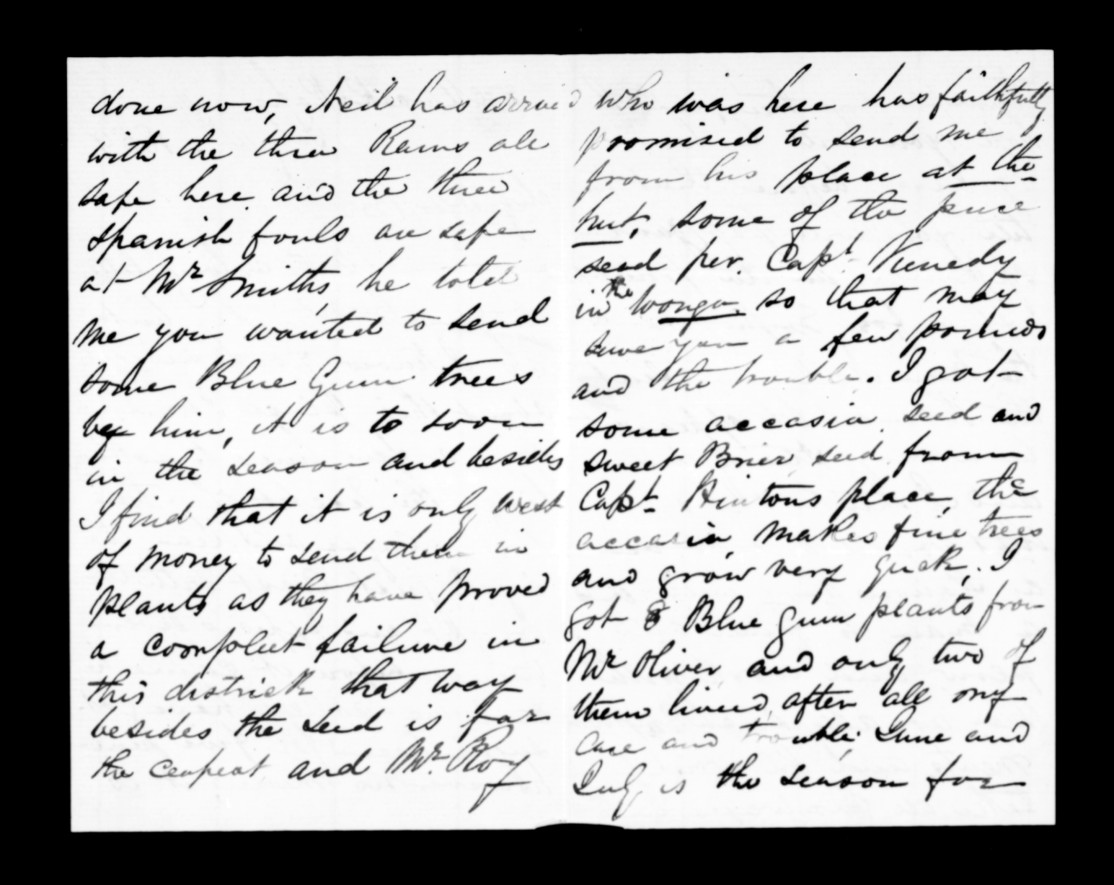 done now, Neil has arrived
with the three Rams all
safe here and the three
Spanish fouls are safe
at Mr Smiths, he told
me you wanted to send
some Blue Gum trees
by him, it is to soon
in the season and besides
I find that it is only west
of money to send them in
plants as they have proved
a compleet failure in
this districk that way
besides the seed is far
the ceapest and Mr. Roy
who was here has faithfully
promised to send me
from his place at the
hut, some of the
seed per. Capt Kenedy
in the Wonga so that may
save you a few pounds
and the trouble. I got
some accasia seed and
sweet Brier seed from
Capt Hintons place, the
accasia makes fine trees
and grow very quck, I
got 8 Blue gum plants from
Mr Oliver and only two of
them lived after all my
care and trouble. June and
July is the season for